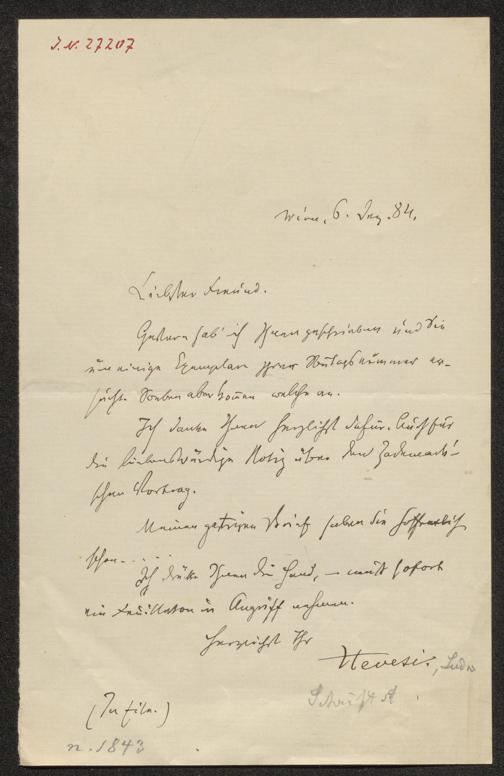 I.N. 27207
Wien, 6. Dez. 84.
Liebster Freund.
Gestern hab' ich Ihnen geschrieben und Sie
um einige Exemplare Ihrer Montagsnummer er-
sucht. Soeben aber kommen welche an.
Ich danke Ihnen herzlichst dafür. Auch für
die liebenswürdige Notiz über den
schen Vortrag.
Meinen gestrigen Brief haben Sie hoffentlich
schon.....
Ich drücke Ihnen die Hand, – muß sofort
ein Feuilleton in Angriff nehmen.
Herzlichst Ihr
Hevesi., Ludw
(In Eile.)
n. 1843